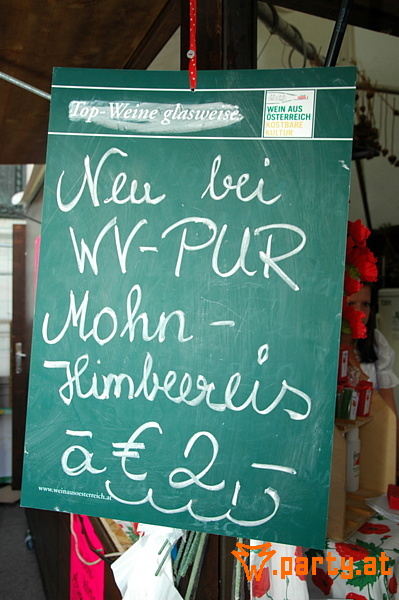 Top-Weine glasweise
WEIN AUS
ÖSTERREICH
KOSTBARE
KULTUR
Neu bei
WV-PUR
Mohn-
Himbeereis
à € 2,-
www.weinausoesterreich.at
w.party.at